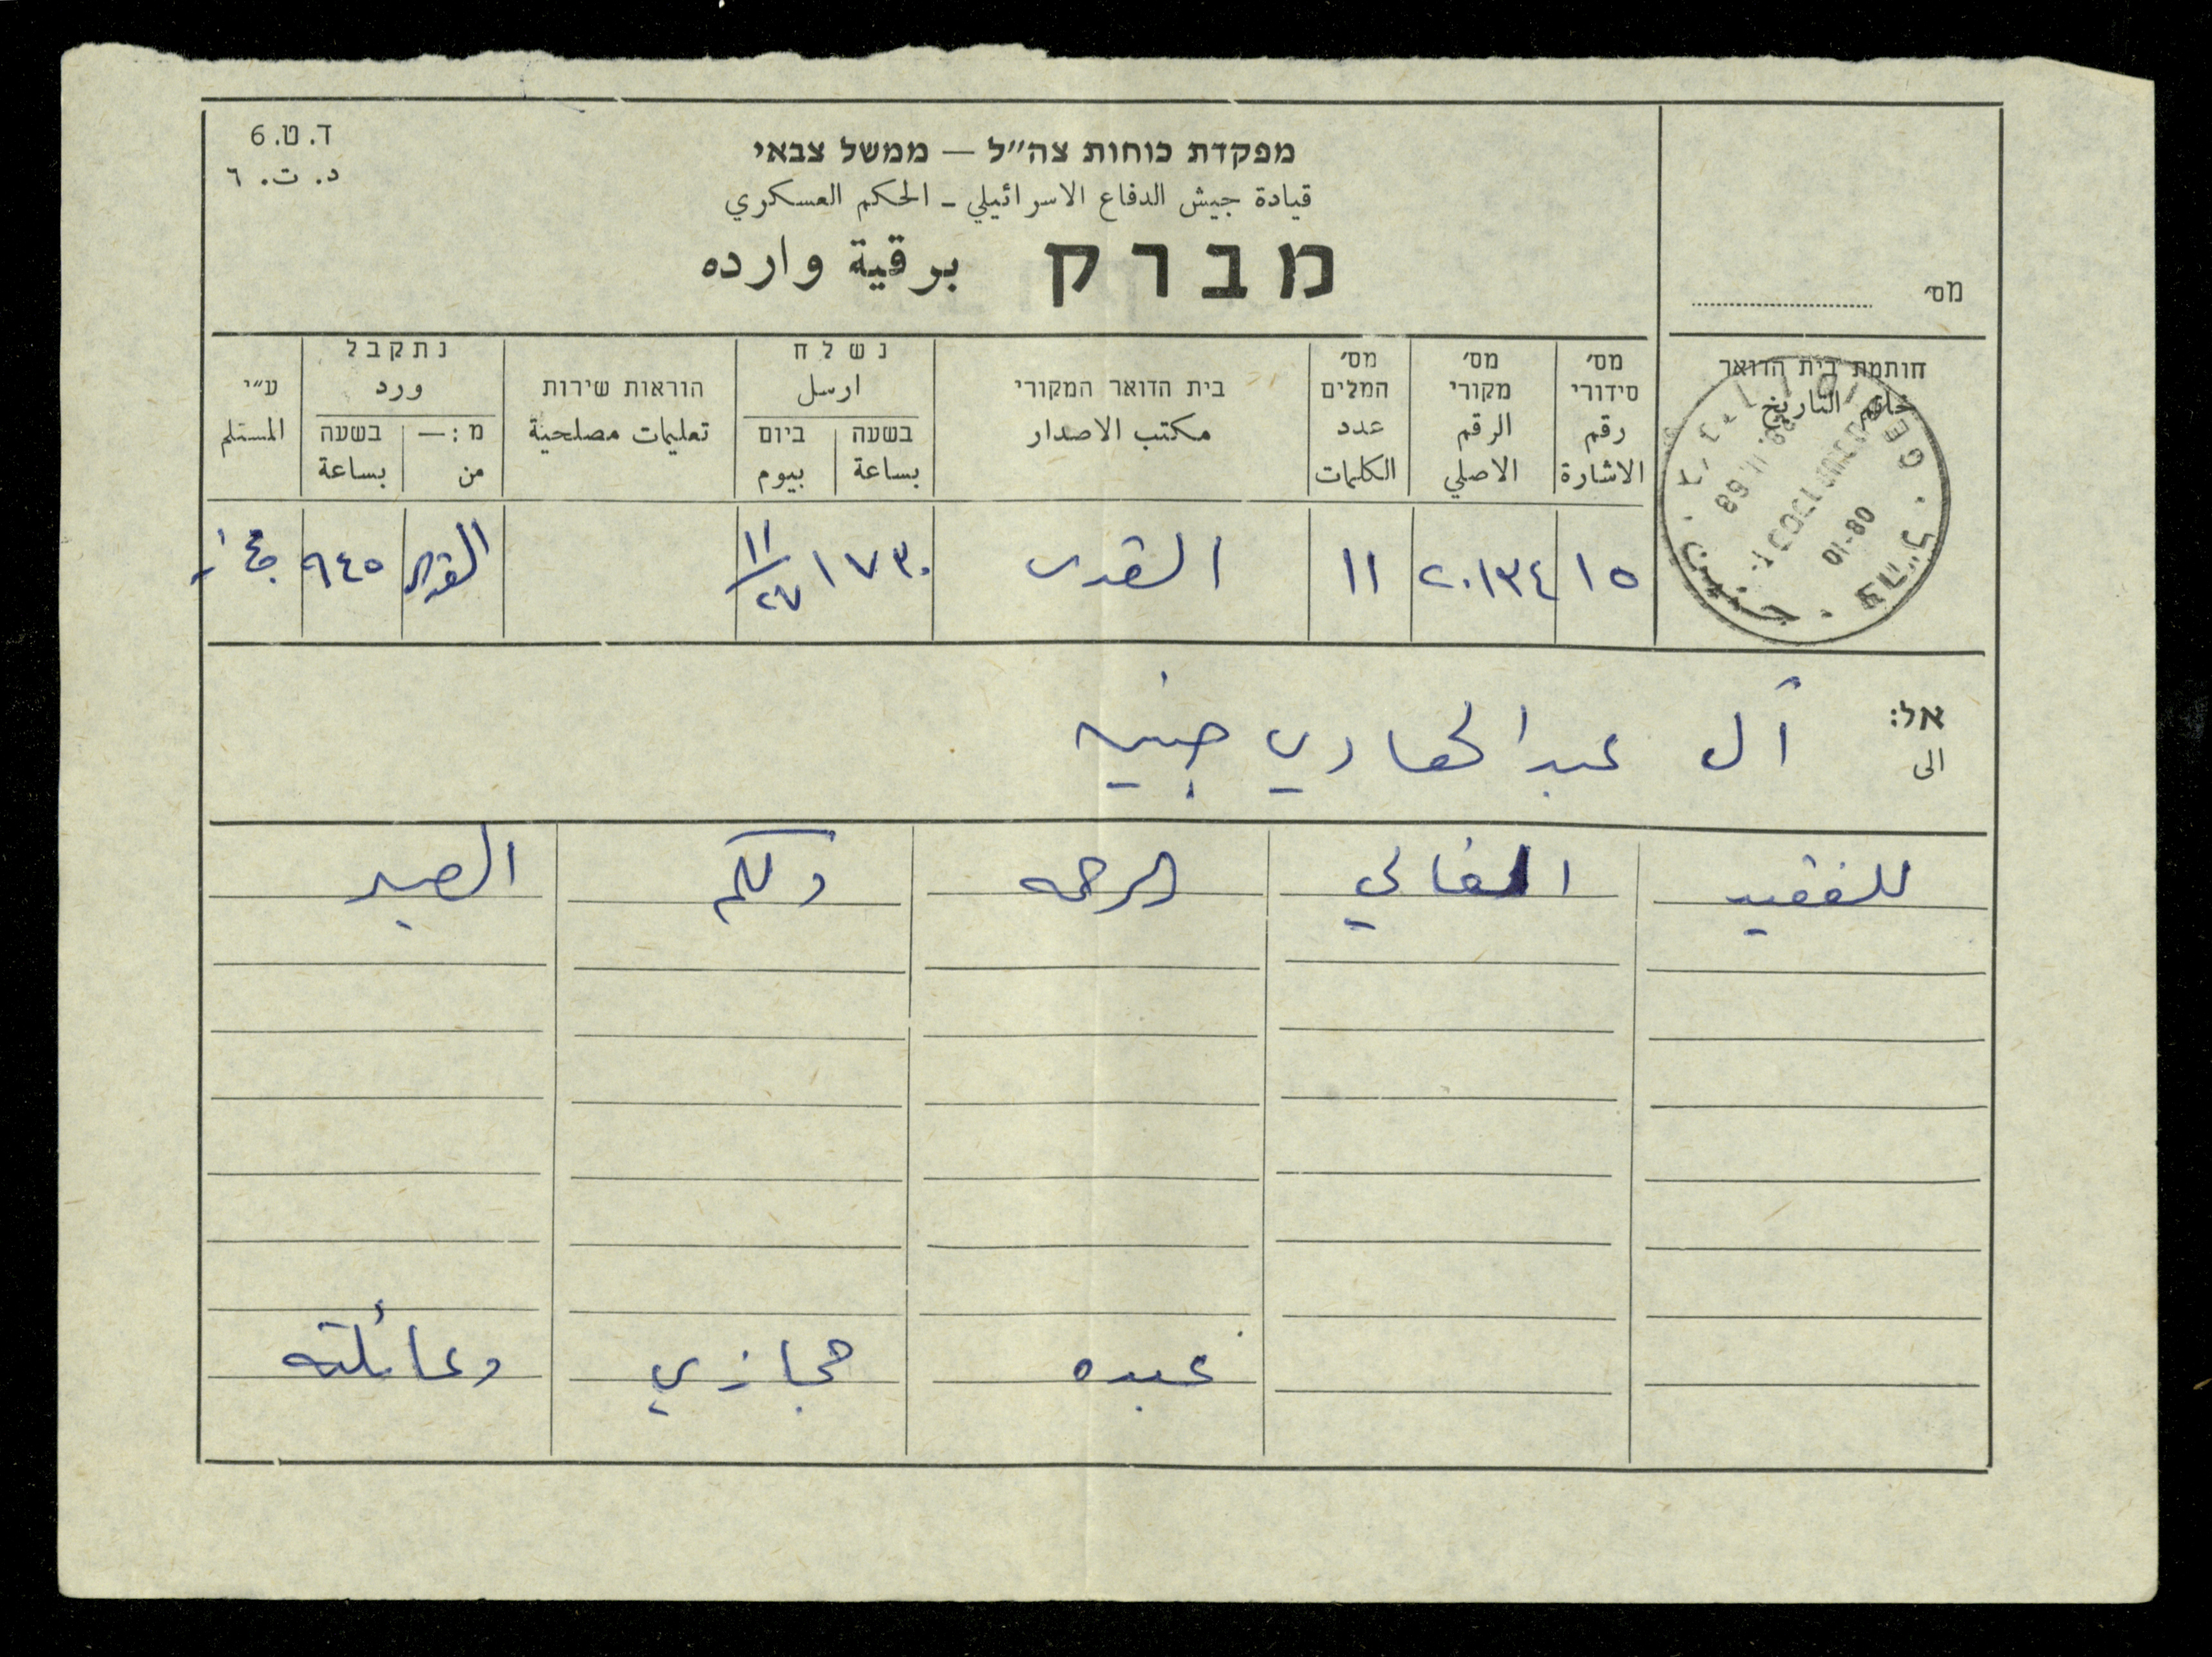 ד. ט. 6
د. ت. ٦
מפקדת כוחות צה״ל — ממשל צבאי
قيادة جيش الدفاع الاسرائيلي ـ الحكم العسكري
מברק برقية وارده
מס׳
חותמת בית הדואר
خاتم التاريخ
מס׳ סידורי
رقم الاشارة
מס׳ מקורי
الرقم الاصلي
מס׳ המלים
عدد الكلمات
בית הדואר המקורי
مكتب الاصدار
נשלח
ارسل
בשעה ביום
بساعة بيوم
הוראות שירות
تعليمات مصلحية
נתקבל
ورد
מ: — בשעה
من بساعة
ע״י
المستلم
١٥ ٢٠١٣٤ ١١ القدس ١٧٣٠ ١١/٢٧ القدس ٩٤٥
جنين
08-10
אל: آل عبد الهادي جنين
الى
للفقيد الغالي الرحمه ولكم الصبر
عبده حجازي وعائلته